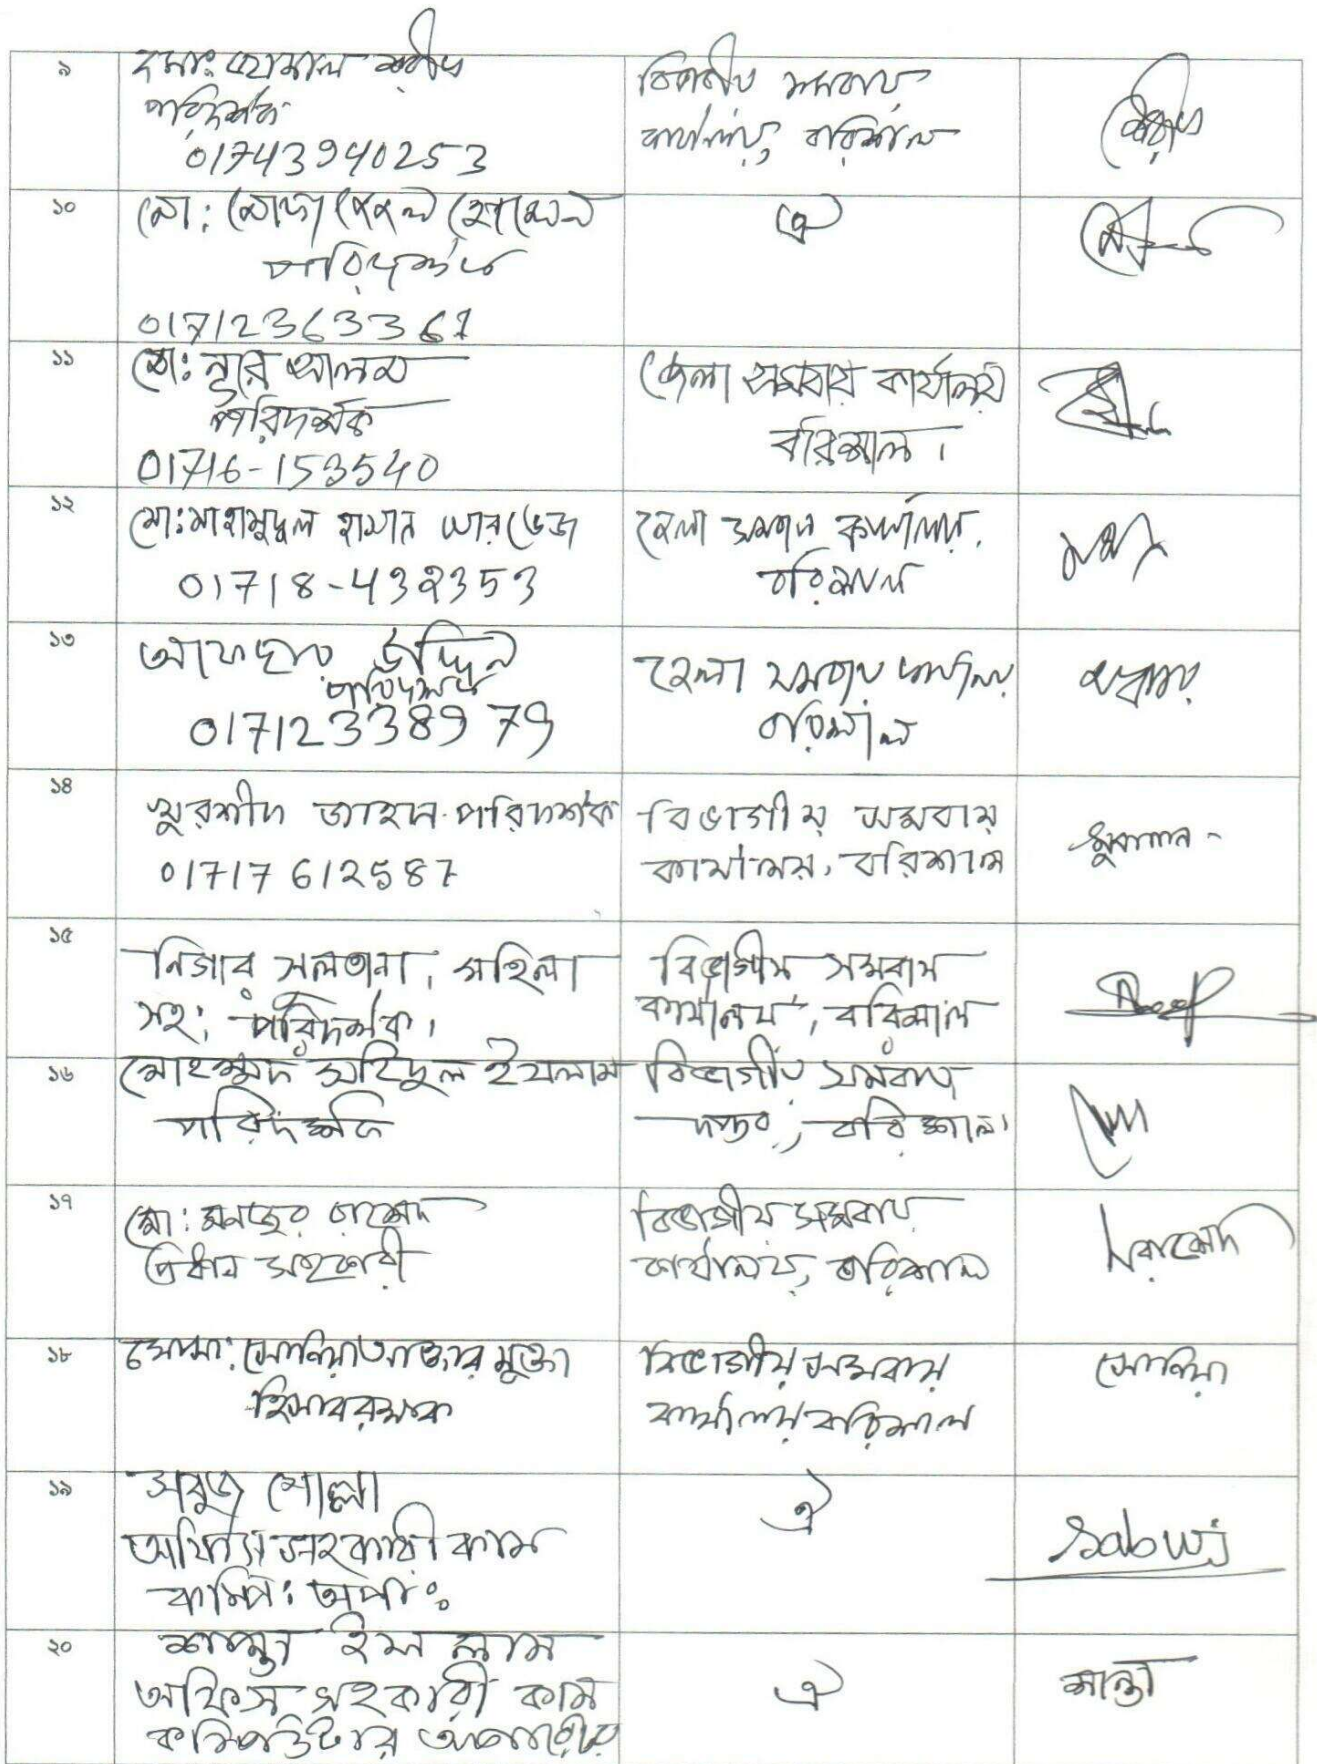 ৯
মোঃ কামাল শরীফ
পরিদর্শক
01743940253
বিভাগীয় সমবায়
কার্যালয়, বরিশাল
শরীফ
১০
মো: মোজাম্মেল হোসেন
পরিদর্শক
01712363361
ঐ
১১
মো: নূর আলম
পরিদর্শক
01716-153540
জেলা সমবায় কার্যালয়
বরিশাল।
১২
মো: মাহামুদুল হাসান পারভেজ
01718-432353
জেলা সমবায় কার্যালয়,
বরিশাল
১৩
উদ্দিন
পরিদর্শক
01712338979
জেলা সমবায় কার্যালয়
বরিশাল
১৪
খুরশীদ জাহান পরিদর্শক
01717612587
বিভাগীয় সমবায়
কার্যালয়, বরিশাল
১৫
নিগার সুলতানা, মহিলা
সহ: পরিদর্শক,
বিভাগীয় সমবায়
কার্যালয়, বরিশাল
১৬
মোহাম্মদ সহিদুল ইসলাম
পরিদর্শক
বিভাগীয় সমবায়
দপ্তর, বরিশাল।
১৭
মো: মনজুর মোর্শেদ
প্রধান সহকারী
বিভাগীয় সমবায়
কার্যালয়, বরিশাল
১৮
মোসা: সোনিয়া আক্তার মুক্তা
হিসাবরক্ষক
বিভাগীয় সমবায়
কার্যালয় বরিশাল
সোনিয়া
১৯
সবুজ মোল্লা
অফিস সহকারী কাম
কম্পি: অপা:
ঐ
Sabuj
২০
শান্তা ইসলাম
অফিস সহকারী কাম
কম্পিউটার অপারেটর
ঐ
শান্তা